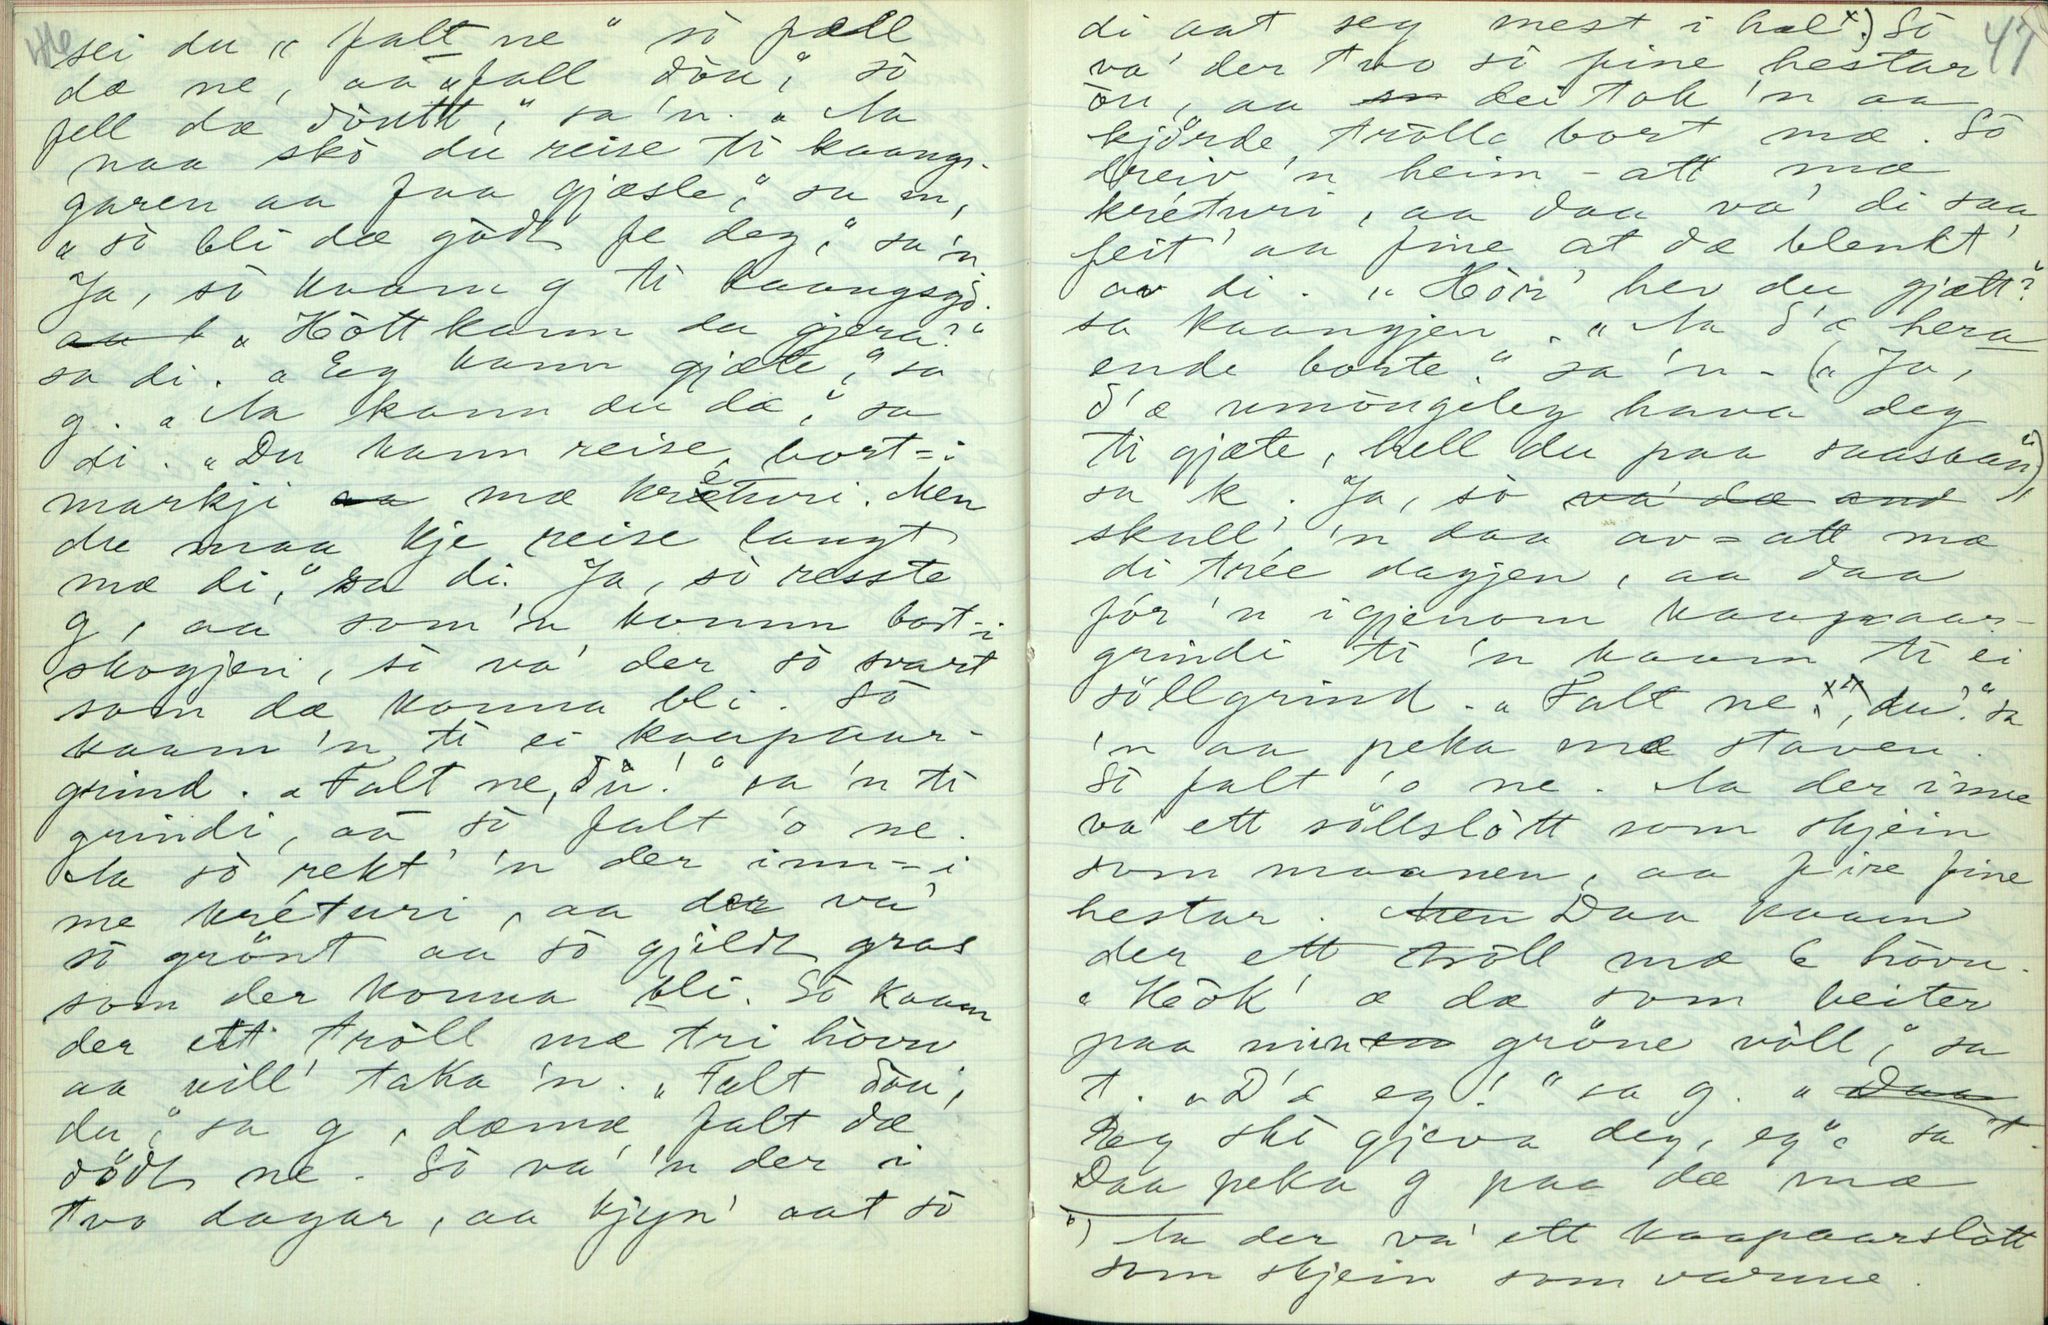 46
sei du „falt ne" sò fæll
dæ ne, aa „fall döu", sò
fell dæ döutt," sa 'n. „Aa
naa skò du reise ti kaangs-
garen aa faa gjæsle," sa 'n,
„sò bli dæ gödt fe deg," sa 'n
Ja, sò kvam g ti kaangsgå.
„Hòtt kann du gjera?"
sa di. „Eg kann gjæte," sa
g. „Aa kann du dæ," sa
di. „Du kann reise bort-i
markji mæ kréturi. Men
du maa kje reise langt
mæ di," sa di. Ja, sò resste
g, aa som 'n komm bort-i
skogjen, sò va' der sò svart
som dæ konna bli. Sò
kaam 'n ti ei kaapaar-
grind. „Falt ne, du!" sa 'n ti
grindi, aa sò falt 'o ne.
Aa sò rekt' 'n der inn-i
me kréturi, aa der va'
sò grönt aa sò gjildt gras
som der konna bli. Sò kaam
der ett tròll mæ tri hòvu
aa vill' taka 'n. „Falt döu,
du," sa g, dæmæ falt dæ
dödt ne. Sò va' 'n der i
tvo dagar, aa kjyn' aat sò
47
di aat seg mest i hæl x) Sò
va' der tvo sò fine hestar
òu, aa dei tok 'n aa
kjörde tròlle bort mæ. Sò
dreiv 'n heim-att mæ
kréturi, aa daa va' di saa
feit' aa fine at dæ blenkt'
av di. „Hòr' hev du gjætt?"
sa kaangjen. „Aa d'æ hera
ende borte" sa 'n - („Ja,
d'æ umöngeleg hava deg
ti gjæte, hell du paa saasaan")
sa k. Ja, sò va' dæ
skull' 'n daa av-att mæ
di trée dagjen, aa daa
fór 'n igjenom kaapaar-
grindi ti 'n kaam ti ei
söllgrind. „Falt ne xx), du!" sa
'n aa peka mæ staven.
Sò falt 'o ne. Aa der inne
va' ett söllslòtt som skjein
som maanen, aa fire fine
hestar. Men Daa kaam
der ett tròll mæ 6 hòvu.
„Hòk' æ dæ som beiter
paa min gröne vòll," sa
t. „D'æ eg!" sa g. „Daa
Eg skò gjeva deg, eg", sa t.
Daa peka g paa dæ mæ
x) Aa der va' ett kaapaarslòtt
som skjein som varme.